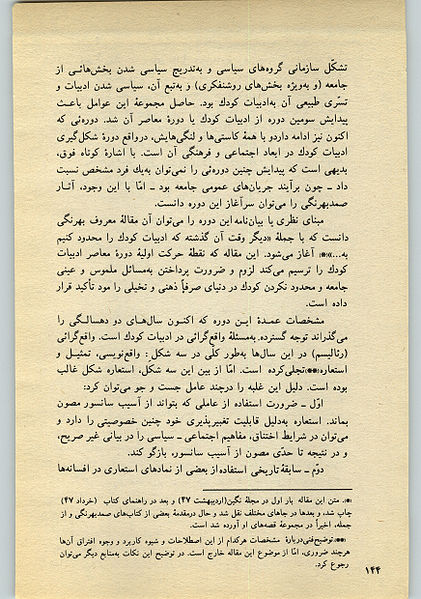 تشکّل سازمانی گروه‌های سیاسی و به‌تدریج سیاسی شدن بخش‌هائی از
جامعه (و به‌ویژه بخش‌های روشنفکری) و به‌تبع آن، سیاسی شدن ادبیات و
تسرّی طبیعی آن به‌ادبیات کودك بود. حاصل مجموعهٔ این عوامل باعث
پیدایش سومین دوره از ادبیات کودك یا دورهٔ معاصر آن شد. دوره‌ئی که
اکنون نیز ادامه دارد و با همهٔ کاستی‌ها و لنگی‌هایش، درواقع دورهٔ شکل‌گیری
ادبیات کودك در ابعاد اجتماعی و فرهنگی آن است. با اشارهٔ کوتاه فوق،
بدیهی است که پیدایش چنین دوره‌ئی را نمی‌توان به‌یك فرد مشخص نسبت
داد ـ چون برآیند جریان‌های عمومی جامعه بود ـ امّا با این وجود، آثـار
صمدبهرنگی را می‌توان سرآغاز این دوره دانست.
مبنای نظری یا بیان‌نامه این دوره را می‌توان آن مقالهٔ معروف بهرنگی
دانست که با جملهٔ «دیگر وقت آن گذشته که ادبیات کودك را محدود کنیم
به...»※ آغاز می‌شود. این مقاله که نقطهٔ حرکت اولیهٔ دورهٔ معاصر ادبیات
کودك را ترسیم می‌کند لزوم و ضرورت پرداختن به‌مسائل ملموس و عینی
جامعه و محدود نکردن کودك در دنیای صرفاً ذهنی و تخیلی را مود تأکید قرار
داده است.
مشخصات عمـدهٔ ایـن دوره که اکنـون سال‌هـای دو دهسـالگی را
می‌گذراند توجه گسترده به‌مسئلهٔ واقع‌گرائی در ادبیات کودك است. واقع‌گرائی
(رئالیسم) در این سال‌ها به‌طور کلّی در سه شکل: واقع‌نویسی، تمثیـل و
استعاره※※تجلی‌کرده است. امّا از بین این سه شکل، استعاره شکل غالب
بوده است. دلیل این غلبه را درچند عامل جست و جو می‌توان کرد:
اوّل ـ ضرورت استفاده از عاملی که بتواند از آسیب سانسور مصون
بماند. استعاره به‌دلیل قابلیت تغییرپذیری خود چنین خصوصیتی را دارد و
می‌توان در شرایط اختناق، مفاهیم اجتماعی ـ سیاسی را در بیانی غیر صریح،
و در نتیجه تا حدّی مصون از آسیب سانسور، بازگو کند.
دوّم ـ سابقهٔ تاریخی استفاده‌از بعضی از نمادهای استعاری در افسانه‌ها
※. متن این مقاله بار اول در مجلهٔ نگین(اردیبهشت ۴۷) و بعد در راهنمای کتاب (خرداد ۴۷)
چاپ شد، و بعدها در جاهای مختلف نقل شد و حال درمقدمهٔ بعضی از کتاب‌های صمدبهرنگی و از
جمله، اخیراً در مجموعهٔ قصه‌های او آورده شده است.
※※.توضیح‌فنی‌دربارهٔ مشخصات هرکدام از این اصطلاحات و شیوه کاربرد و وجوه افتراق آن‌ها
هرچند ضروری، امّا از موضوع این مقاله خارج است. در توضیح این نکات به‌منابع دیگر می‌توان
رجوع کرد.
۱۴۴